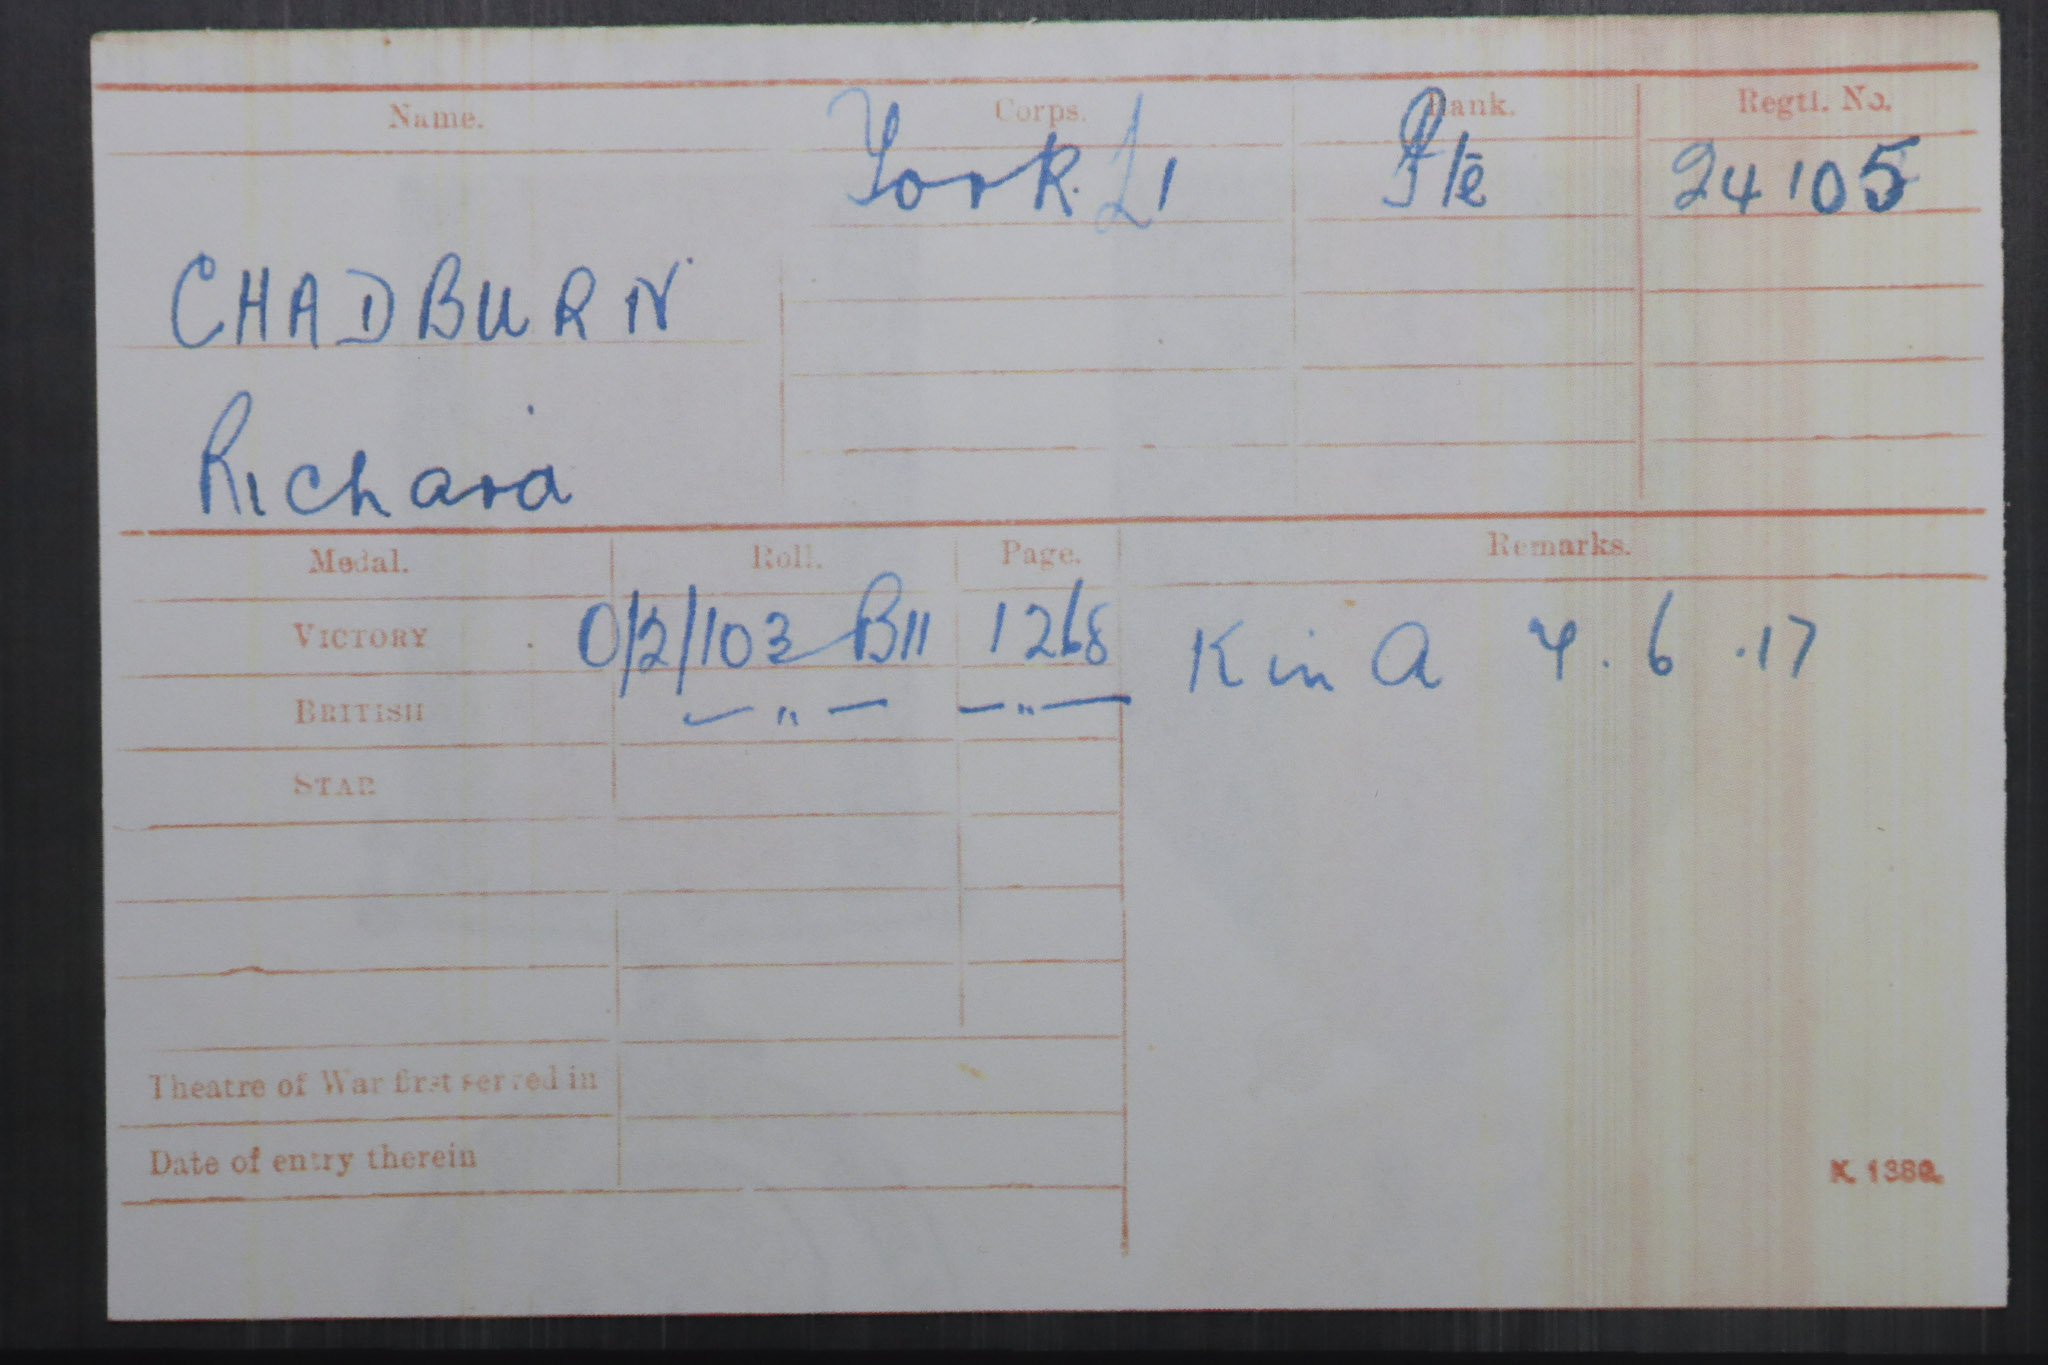 Name. Corps. Rank. Regtl. No.
York. L1 Pte 24105
CHADBURN
Richard
Medal. Roll. Page. Remarks.
VICTORY 0/2/103 B11 1268 K in A 7.6.17
BRITISH — " — — " —
STAR
Theatre of War first served in
Date of entry therein
K. 1380.